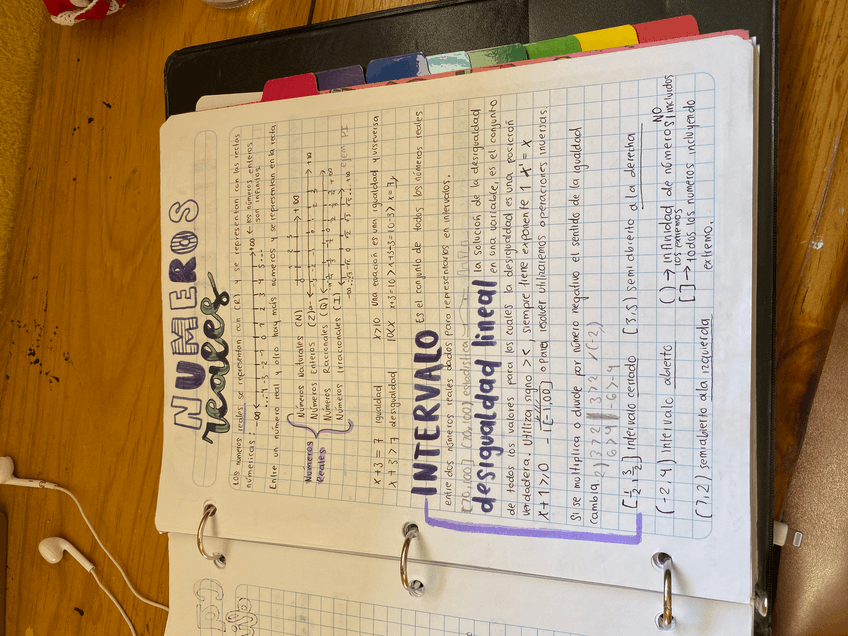 NUMEROS
reales
Los números reales se representan con (R) y se representan con las rectas
númericas:
-∞ ← →+∞ ← los números enteros
...-4 -3 -2 -1 0 1 2 3 4 5... son infinitos
Entre un número real y otro hay más números y se representan en la recta
Números Reales
Números Naturales (N) →+∞
Números Enteros (Z) -∞ → +∞
Números Racionales (Q)
Números Irracionales (I)
x+3=7 igualdad x>10 una ecuación es una igualdad y viseversa
x+3>7 desigualdad 10<x x+3=10 > x+3-3=10-3 > x=7
INTERVALO Es el conjunto de todos los números reales
entre dos números reales dados para representarlos en intervalos.
desigualdad lineal la solución de la desigualdad
en una variable, es el conjunto
de todos los valores para los cuales la desigualdad es una posición
verdadera. Utiliza signo ><, siempre tiene exponente 1 x¹=x
x+1≥0 -1 [-1,∞) o para resolver utilizaremos operaciones inversas.
Si se multiplica o divide por número negativo el sentido de la igualdad
cambia 2) 3>2 3>2 (-2)
6>4 -6>-4
[½, 3/2] intervalo cerrado [3,5) semi abierto a la derecha
(-2,4) intervalo abierto ( ) → infinidad de números NO incluidos
los extremos
(7,2) semiabierto a la izquierda [ ] → todos los numeros incluyendo
extremo.